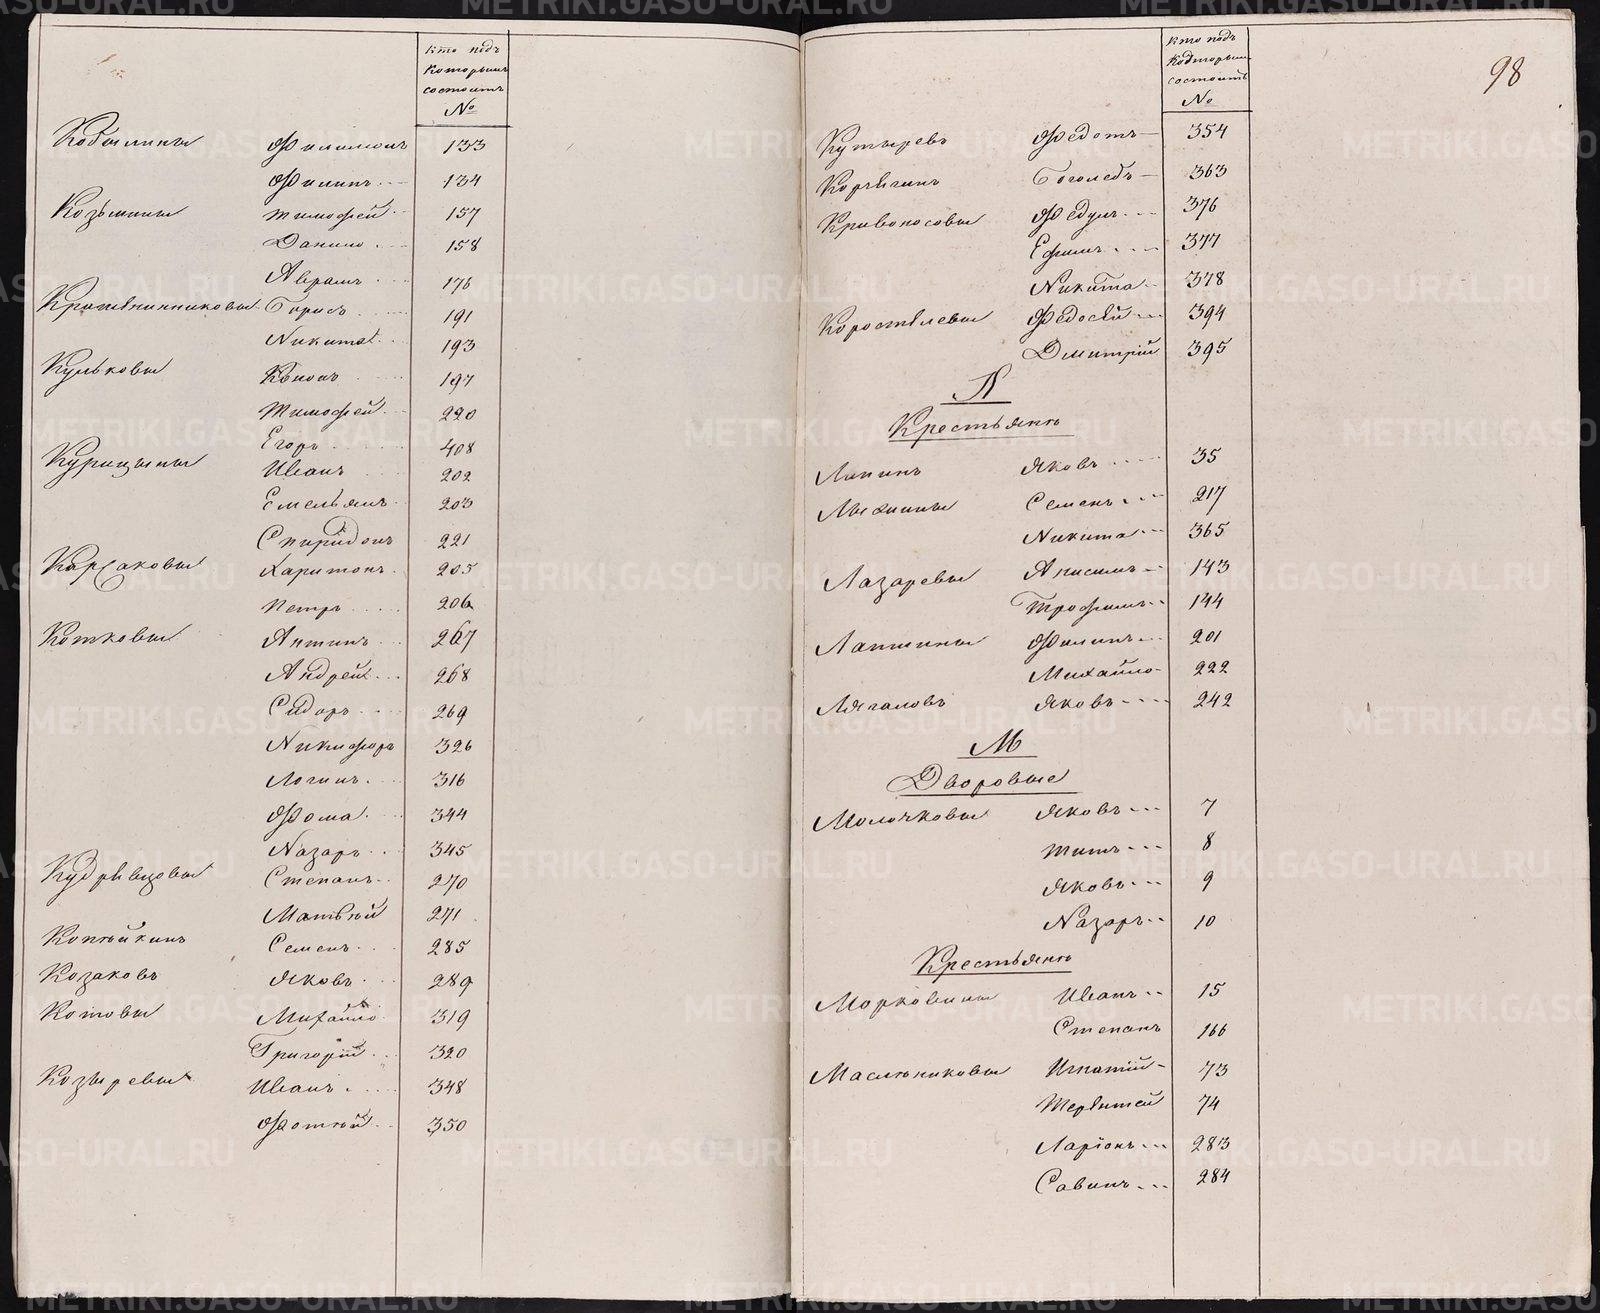 Кто подъ
которымъ
состоитъ
№
Кобылины Филимонъ 133
Филипъ 134
Козьмины Тимофей 157
Данило 158
Аврамъ 176
Крапивниковы Борисъ 191
Никита 193
Кульковы Кононъ 197
Тимофей 220
Егоръ 408
Курицыны Иванъ 202
Емельянъ 203
Спиридонъ 221
Карсаковы Харитонъ 205
Петръ 206
Котковы Антипъ 267
Андрей 268
Сидоръ 269
Никифоръ 326
Логинъ 316
Фома 344
Назаръ 345
Кудрявцовы Степанъ 270
Матвѣй 271
Копѣйкинъ Семенъ 285
Козаковъ Яковъ 289
Котовы Михайло 319
Григорій 320
Козыревы Иванъ 348
Фотѣй 350
98
Кто подъ
которымъ
состоитъ
№
Кутыревъ Федотъ 354
Корчагинъ Боголебъ 363
Кривоносовы Федулъ 376
Ефимъ 377
Никита 378
Коростѣлевы Федосѣй 394
Дмитрій 395
Л
Крестьяне
Липинъ Яковъ 35
Лыхины Семенъ 217
Никита 365
Лазаревы Анисимъ 143
Трофимъ 144
Лапшины Филипъ 201
Михайло 222
Лягаловъ Яковъ 242
М
Дворовые
Молочковы Яковъ 7
Титъ 8
Яковъ 9
Назаръ 10
Крестьяне
Морковины Иванъ 15
Степанъ 166
Масленниковы Игнатій 73
Терентей 74
Ларіонъ 283
Савинъ 284
METRIKI.GASO-URAL.RU